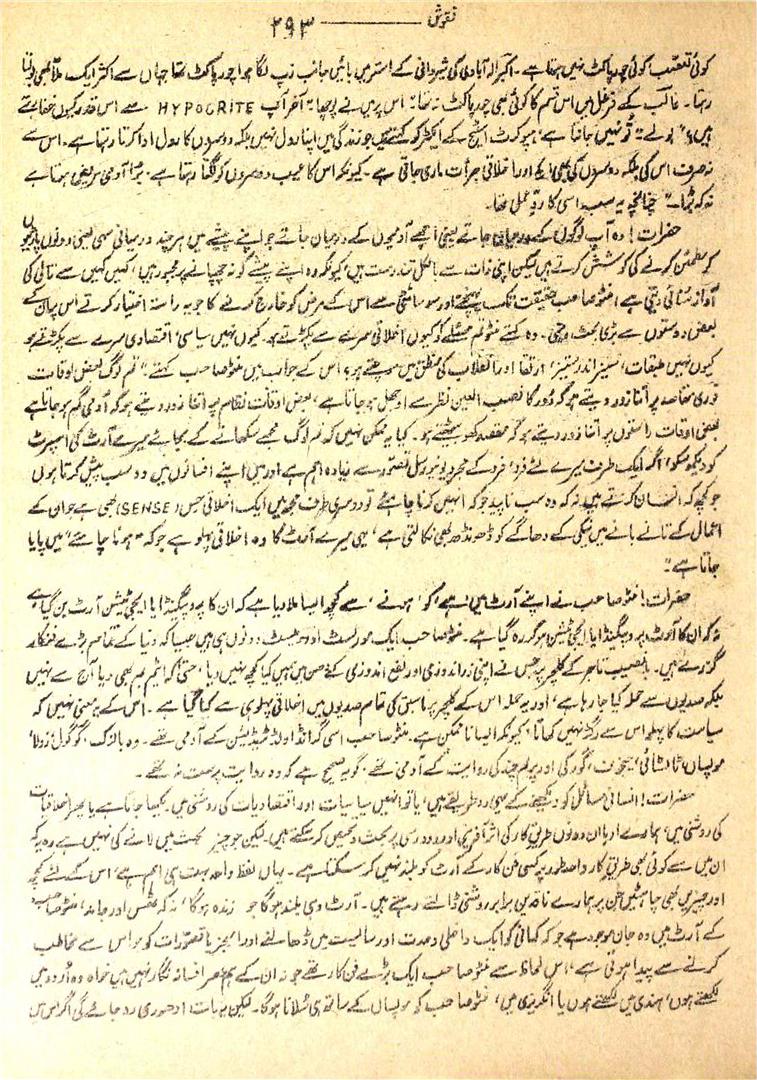 نقوش ——— ۲۹۳
کوئی تعصب کوئی چور پاکٹ نہیں ہوتا ہے۔ اکبر الہ آبادی کی شیروانی کے استر میں بائیں جانب زپ لگا ہوا چور پاکٹ تھا جہاں سے اکثر ایک ملا بھی بولتا
رہتا۔ غالب کے فرغل میں اس قسم کا کوئی بھی چور پاکٹ نہ تھا۔ اس پر میں نے پوچھا۔ آخر آپ HYPOCRITE سے اس قدر کیوں خفا رہتے
ہیں؟" بولے۔ تو نہیں جانتا ہے، ہیپوکرٹ اسٹیج کے ایکٹر کو کہتے ہیں جو زندگی میں اپنا رول نہیں بلکہ دوسروں کا رول ادا کرتا رہتا ہے۔ اس سے
نہ صرف اس کی بلکہ دوسروں کی بھی ایچ اور اخلاقی جرأت ماری جاتی ہے۔ کیونکہ اس کا عیب دوسروں کو لگتا رہتا ہے۔ برا آدمی مریض ہوتا ہے
نہ کہ برا۔" چنانچہ یہ سب اسی کا ردِ عمل تھا۔
حضرات! وہ آپ لوگوں کے درمیان جاتے یعنی اچھے آدمیوں کے درمیان جاتے جو اپنے پیشے میں ہر چند درمیانی سہی یعنی دونوں پارٹیوں
کو مطمئن کرنے کی کوشش کرتے ہیں لیکن اپنی ذات سے بالکل تندرست ہیں، کیونکہ وہ اپنے پیشے کو نہ چھپانے پر مجبور ہیں، کہیں کہیں سے تالی کی
آواز سنائی دیتی ہے، منٹو صاحب حقیقت تک پہنچنے اور سوسائٹی سے اس کے مرض کو خارج کرنے کا جو یہ راستہ اختیار کرتے اس پر ان کے
بعض دوستوں سے بڑی بحث رہتی۔ وہ کہتے منٹو تم مسئلے کو کیوں اخلاقی سرے سے پکڑتے ہو۔ کیوں نہیں سیاسی، اقتصادی سرے سے پکڑتے ہو
کیوں نہیں طبقات، ارتقا اور انقلاب کی منطق میں سوچتے ہو؟ اس کے جواب میں منٹو صاحب کہتے۔ "تم لوگ بعض اوقات
فوری مقاصد پر اتنا زور دیتے ہو کہ دور کا نصب العین نظر سے اوجھل ہو جاتا ہے، بعض اوقات نظام پر اتنا زور دیتے ہو کہ آدمی گم ہو جاتا ہے
بعض اوقات راستوں پر اتنا زور دیتے ہو کہ مقصد کھو بیٹھتے ہو۔ کیا یہ ممکن نہیں کہ تم لوگ مجھے سکھانے کے بجائے میرے آرٹ کی اسپرٹ
کو دیکھ سکو، اگر ایک طرف میرے لئے فرد، فرد کے مجرد یونیورسل تصور سے زیادہ اہم ہے اور میں اپنے افسانوں میں وہ سب پیش کرتا ہوں
جو کچھ کہ انسان کرتے ہیں نہ کہ وہ سب شاید جو کہ انہیں کرنا چاہئے تو دوسری طرف مجھ میں ایک اخلاقی حس (SENSE) بھی ہے جو ان کے
اعمال کے تانے بانے میں نیکی کے دھاگے کو ڈھونڈھ بھی نکالتی ہے، یہی میرے آرٹ کا وہ اخلاقی پہلو ہے جو کہ "ہونا چاہئے" میں پایا
جاتا ہے۔"
حضرات! منٹو صاحب نے اپنے آرٹ میں 'ہے' کو 'ہونے' سے کچھ ایسا ملا دیا ہے کہ ان کا پروپیگنڈا یا ایجی ٹیشن آرٹ بن گیا ہے
نہ کہ ان کا آرٹ پروپیگنڈا یا ایجی ٹیشن ہو کر رہ گیا ہے۔ منٹو صاحب ایک مورلسٹ اور آرٹسٹ دونوں ہی ہیں جیسا کہ دنیا کے تمام بڑے فنکار
گزرے ہیں۔ بدنصیب تاجر کے کلچر پر جس نے اپنی زر اندوزی اور نفع اندوزی کے حق میں ہمیں کیا کچھ نہیں دیا، حتیٰ کہ ایٹم بم بھی دیا آج سے نہیں
بلکہ صدیوں سے حملہ کیا جا رہا ہے، اور یہ حملہ اس کے کلچر پر ماضی کی تمام صدیوں میں اخلاقی پہلو ہی سے کیا گیا ہے۔ اس کے یہ معنی نہیں کہ
سیاست کا پہلو اس سے رگڑ نہیں کھاتا، کیونکہ ایسا ناممکن ہے۔ منٹو صاحب اسی گرانڈ اولڈ ٹریڈیشن کے آدمی تھے۔ وہ بالزک، گوگول، زولا،
موپساں، ٹالسٹائی، چیخوف، گورکی اور پریم چند کی روایت کے آدمی تھے، گو یہ صحیح ہے کہ وہ روایت پرست نہ تھے۔
حضرات! انسانی مسائل کو دیکھنے کے یہی دو طریقے ہیں، یا تو انہیں سیاسیات اور اقتصادیات کی روشنی میں دیکھا جاتا ہے یا پھر اخلاقیات
کی روشنی میں، ہمارے ادبا ان دونوں طریق کار کی اثر آفرینی اور دور رسی پر بحث و تمحیص کر سکتے ہیں۔ لیکن جو چیز بحث میں لانے کی نہیں ہے وہ یہ کہ
ان میں سے کوئی بھی طریق کار واحد طور پر کسی فن کار کے آرٹ کو بلند نہیں کر سکتا ہے۔ یہاں لفظ واحد بہت ہی اہم ہے، اس کے لئے کچھ
اور چیزیں بھی چاہئیں جن پر ہمارے ناقدین برابر روشنی ڈالتے رہتے ہیں۔ آرٹ وہی بلند ہوگا جو زندہ ہوگا، نہ کہ ٹھس اور جامد، منٹو صاحب
کے آرٹ میں وہ جان موجود ہے جو کہ کہانی کو ایک داخلی وحدت اور سالمیت میں ڈھالنے اور امیجز یا تصورات کو حواس سے مخاطب
کرنے سے پیدا ہوتی ہے، اس لحاظ سے منٹو صاحب ایک بڑے فن کار تھے جو نہ ان کے ہم عصر افسانہ نگار نہیں ہیں خواہ وہ اردو میں
لکھتے ہوں، ہندی میں لکھتے ہوں یا انگریزی میں، منٹو صاحب کو موپساں کے ساتھ ہی سلانا ہوگا۔ لیکن یہ بات ادھوری رہ جائے گی اگر اس میں